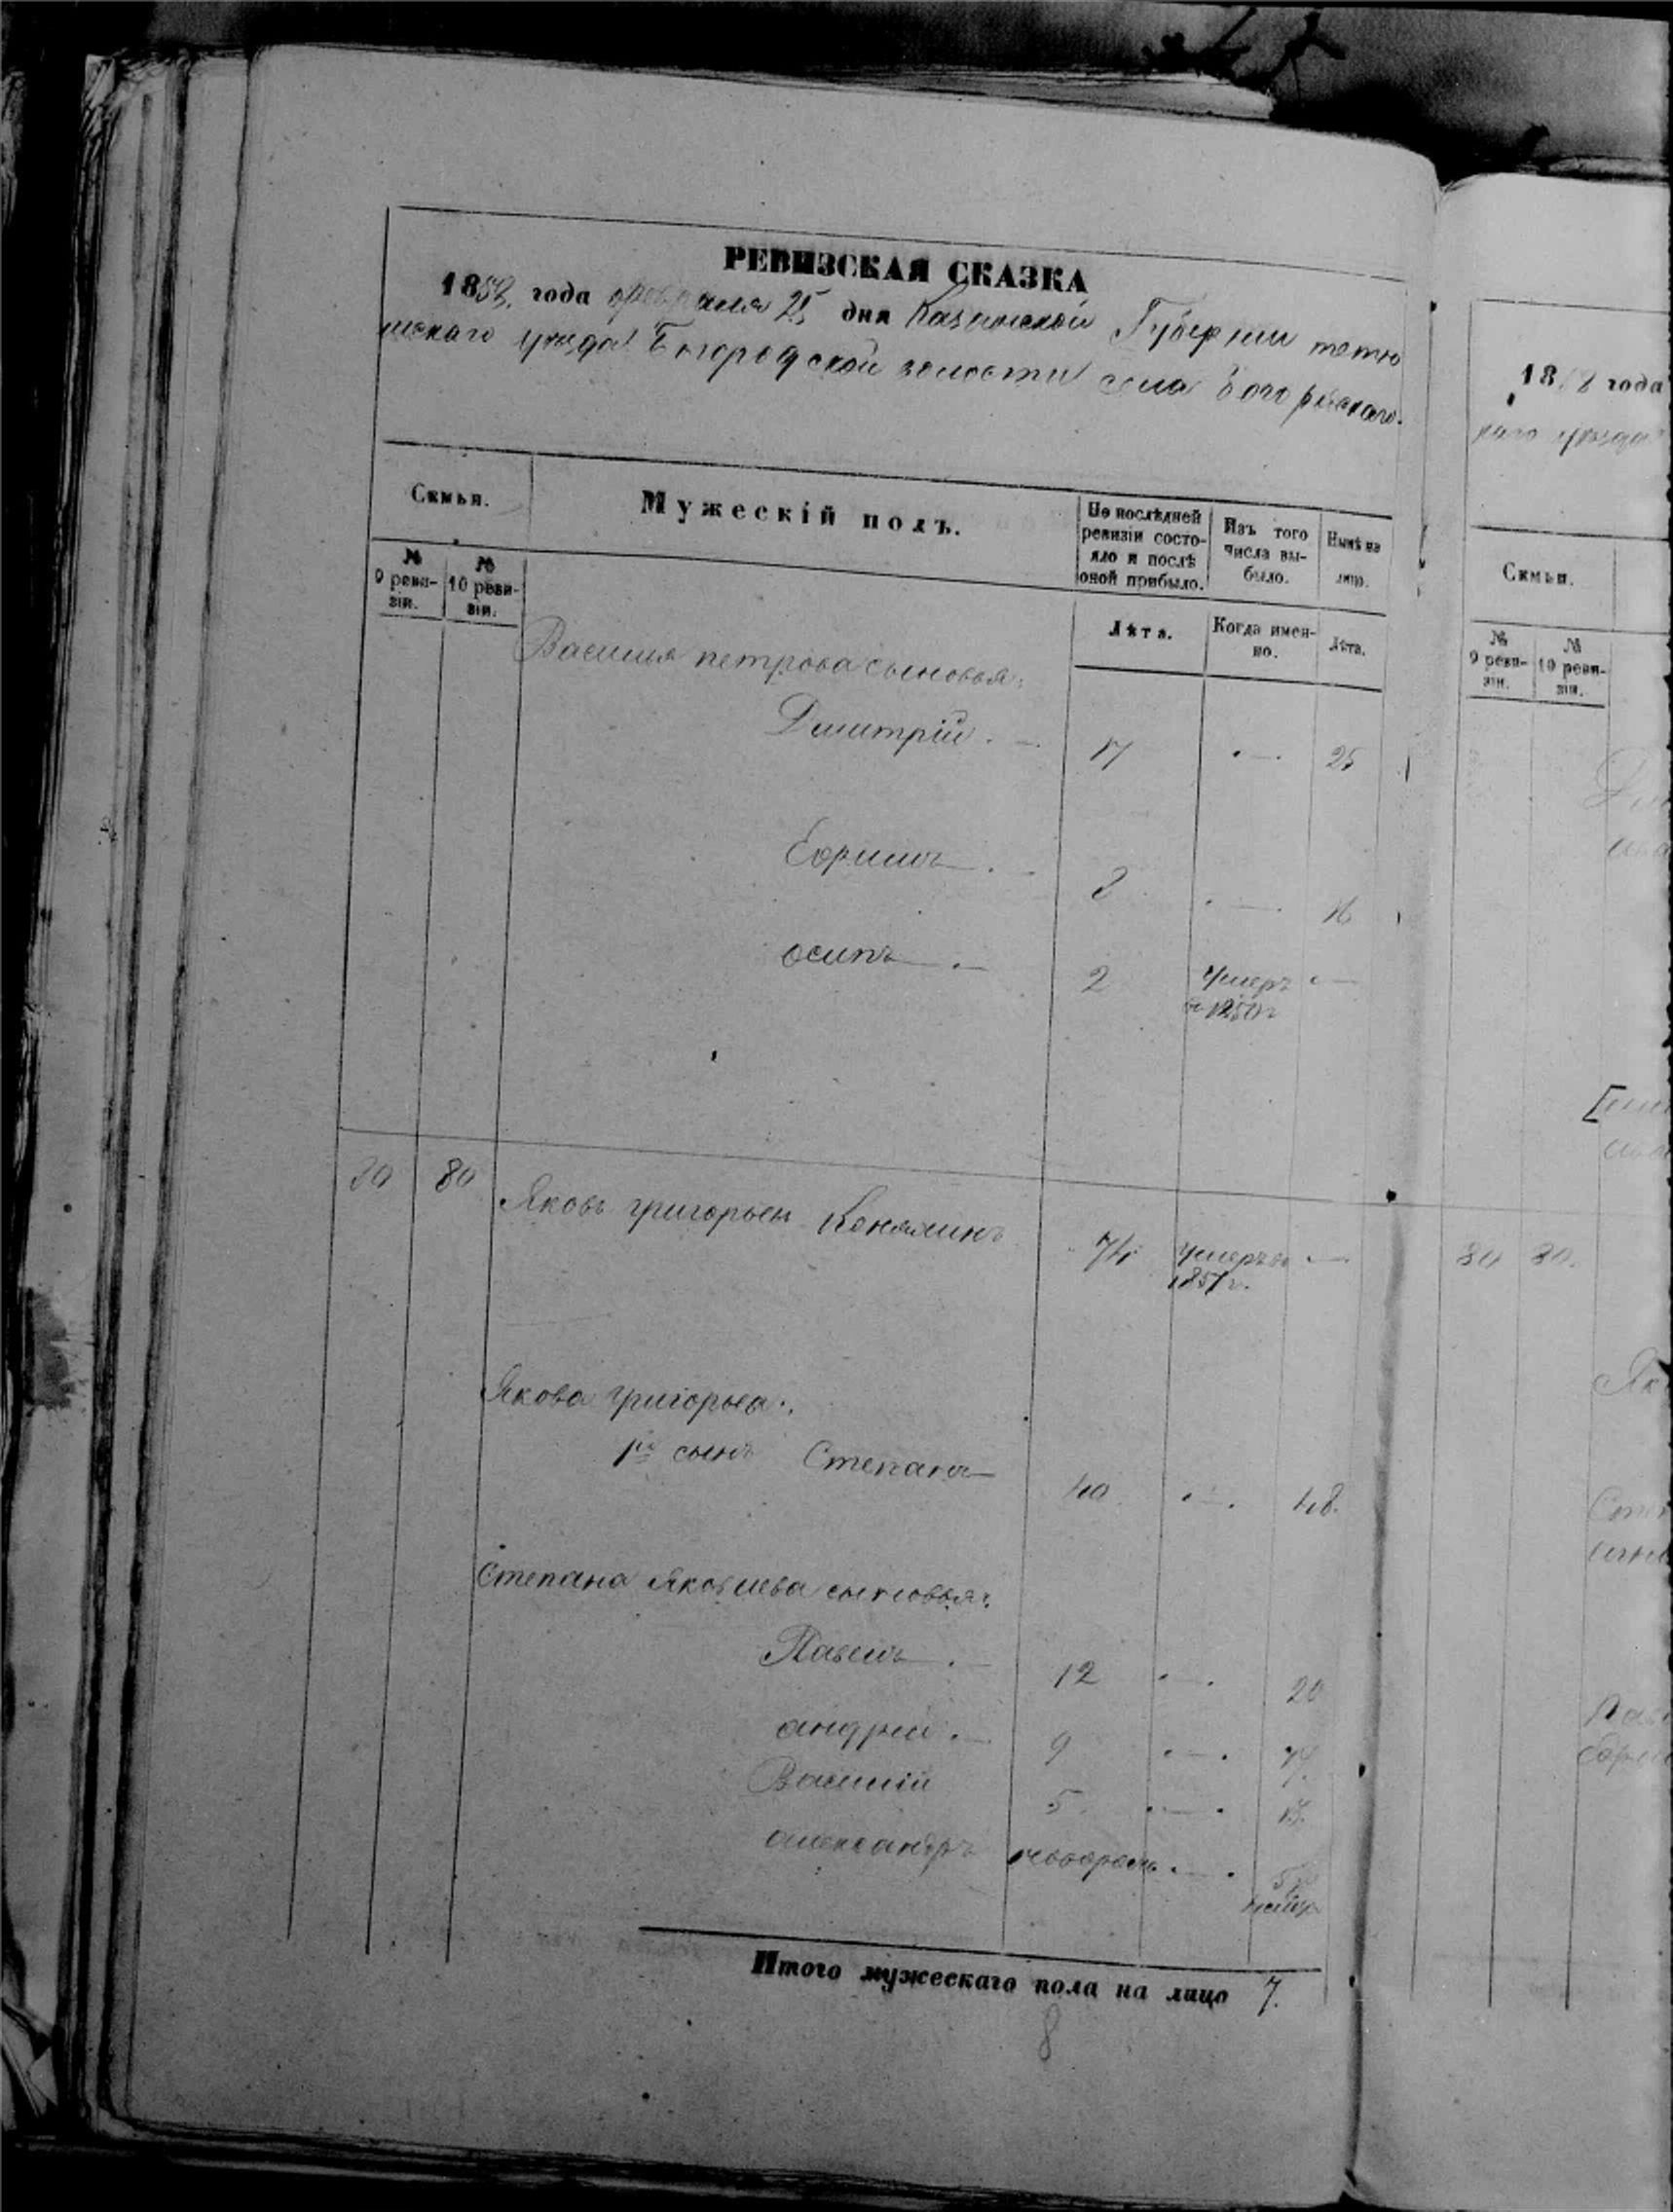 РЕВИЗСКАЯ СКАЗКА
1858 года февраля 25 дня Казанской Губернии тетю
шскаго уезда Богородской волости села Богородскаго.
Семьи.
Мужескій полъ.
По послѣдней ревизіи состояло и послѣ оной прибыло.
Изъ того числа выбыло.
Нынѣ на лицо.
№ 9 ревизіи.
№ 10 ревизіи.
Лѣта.
Когда именно.
Лѣта.
Василия петрова сыновья:
Дмитрій . — 17 . — . 25
Ефимъ . 8 . — . 16
осипъ . — 2 Умеръ . —
въ 1850 г
80 80 Яковъ григорьев 74 умеръ въ . —
1857 г.
Якова григорьева:
1й сынъ Степанъ 40 . — . 48.
Степана Яковлева сыновья:
Павелъ . — 12 . — . 20
андрей . — 9 . — . 17.
Василій 5 . — . 13.
александръ новорожъ . — . 5
Итого мужескаго пола на лицо 7.
8
18 8 года
каго уезда
Семьи.
№ 9 ревизіи.
№ 10 ревизіи.
80 80.